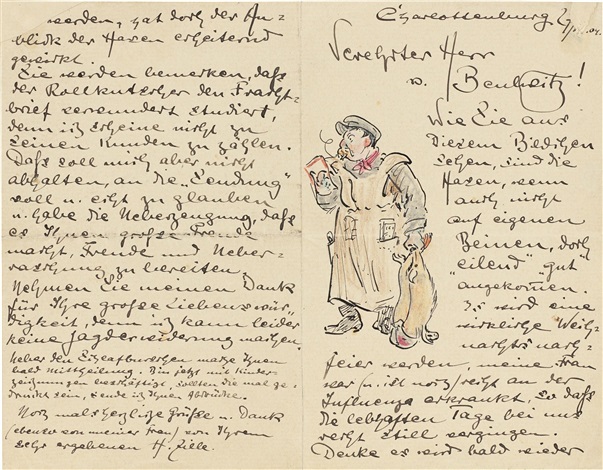 Charlottenburg
Verehrter Herr
v. Benkwitz!
Wie Sie aus
diesem Bildchen
sehen, sind die
Hasen, wenn
auch nicht
auf eigenen
Beinen, doch
"eilend" "gut"
"angekommen.
Es wird eine
wirkliche Weih-
nachtsnach-
feier werden, meine Frau
war (u. ist noch) recht an der
Influenza erkrankt, so daß
die lebhaften Tage bei uns
recht still vergingen.
Denke es wird bald wieder
werden, hat doch der An-
blick der Hasen erheiternd
gewirkt.
Sie werden bemerken, daß
der Rollkutscher den Fracht-
brief verwundert studiert,
denn ich scheine nicht zu
seinen Kunden zu zählen.
Daß soll mich aber nicht
abhalten, an die "Sendung"
voll u. echt zu glauben
u. habe die Ueberzeugung, daß
es Ihnen große Freude
macht, Freude und Ueber-
raschung zu bereiten.
Nehmen Sie meinen Dank
für Ihre große Liebenswür-
digkeit, denn ich kann leider
keine Jagderwiderung machen.
Ueber den mache Ihnen
bald Mittheilung. Bin jetzt mit Kinder
zeichnungen beschäftigt, sollten die mal ge-
druckt sein, sende ich Ihnen Abdrücke.
Noch mals herzliche Grüße u. Dank
(ebenso von meiner Frau) von Ihrem
sehr ergebenen H. Zille.